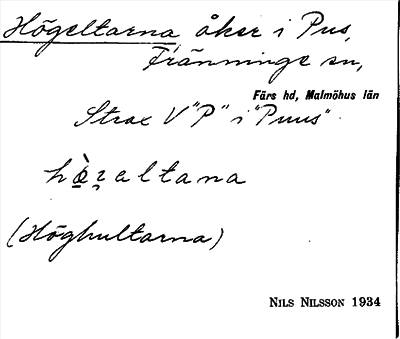 Högeltarna åker i Pus,
Fränninge sn,
Färs hd, Malmöhus län
Strax V "P" i "Puus".
hø̀ꝛaltana
(Höghultarna)
NILS NILSSON 1934